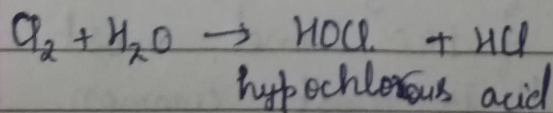 Cl₂ + H₂O → HOCl + HCl
hypochlorous acid